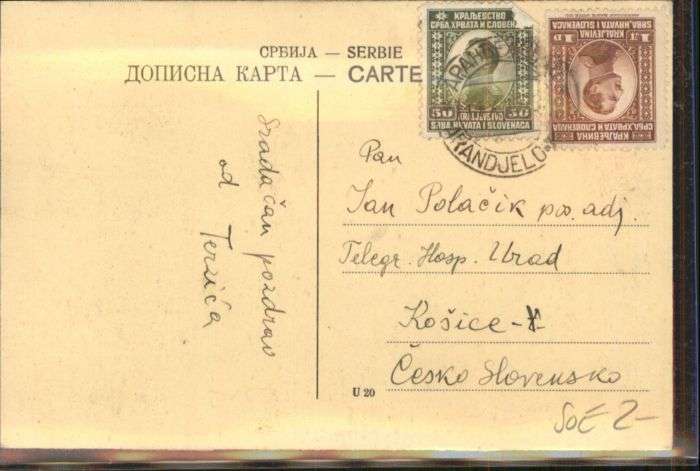 СРБИЈА — SERBIE
ДОПИСНА КАРТА — CARTE
КРАЉЕВСТВО
СРБА, ХРВАТА И СЛОВЕН
50 50
SRBA, HRVATA I SLOVENACA
KRALJEVINA
SRBA HRVATA I SLOVENACA
1 D
КРАЉЕВИНА
СРБА, ХРВАТА И СЛОВЕНАЦА
ARANDJELO
Srdačan pozdrav
od
Terzića
Pan
Jan Polačik po. adj.
Telegr. Hosp. Urad
Košice -
Česko Slovensko
U 20
SoE 2-